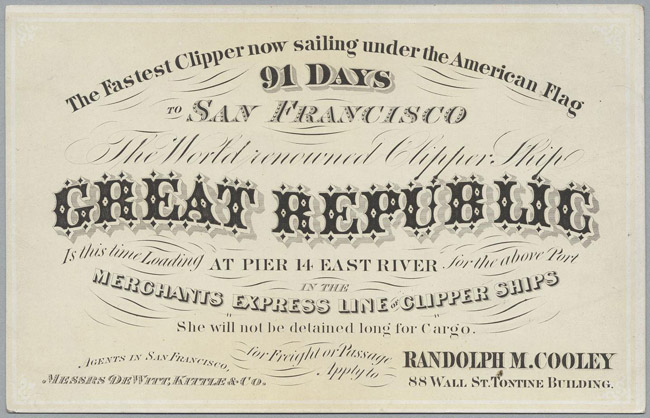 The Fastest Clipper now sailing under the American Flag
91 DAYS
TO SAN FRANCISCO
The World renowned Clipper Ship
GREAT REPUBLIC
Is this time Loading AT PIER 14 EAST RIVER for the above Port
IN THE
MERCHANTS EXPRESS LINE OF CLIPPER SHIPS
She will not be detained long for Cargo.
AGENTS IN SAN FRANCISCO,
MESSRS DEWITT, KITTLE & CO.
for Freight or Passage
Apply to
RANDOLPH M. COOLEY
88 WALL ST. TONTINE BUILDING.